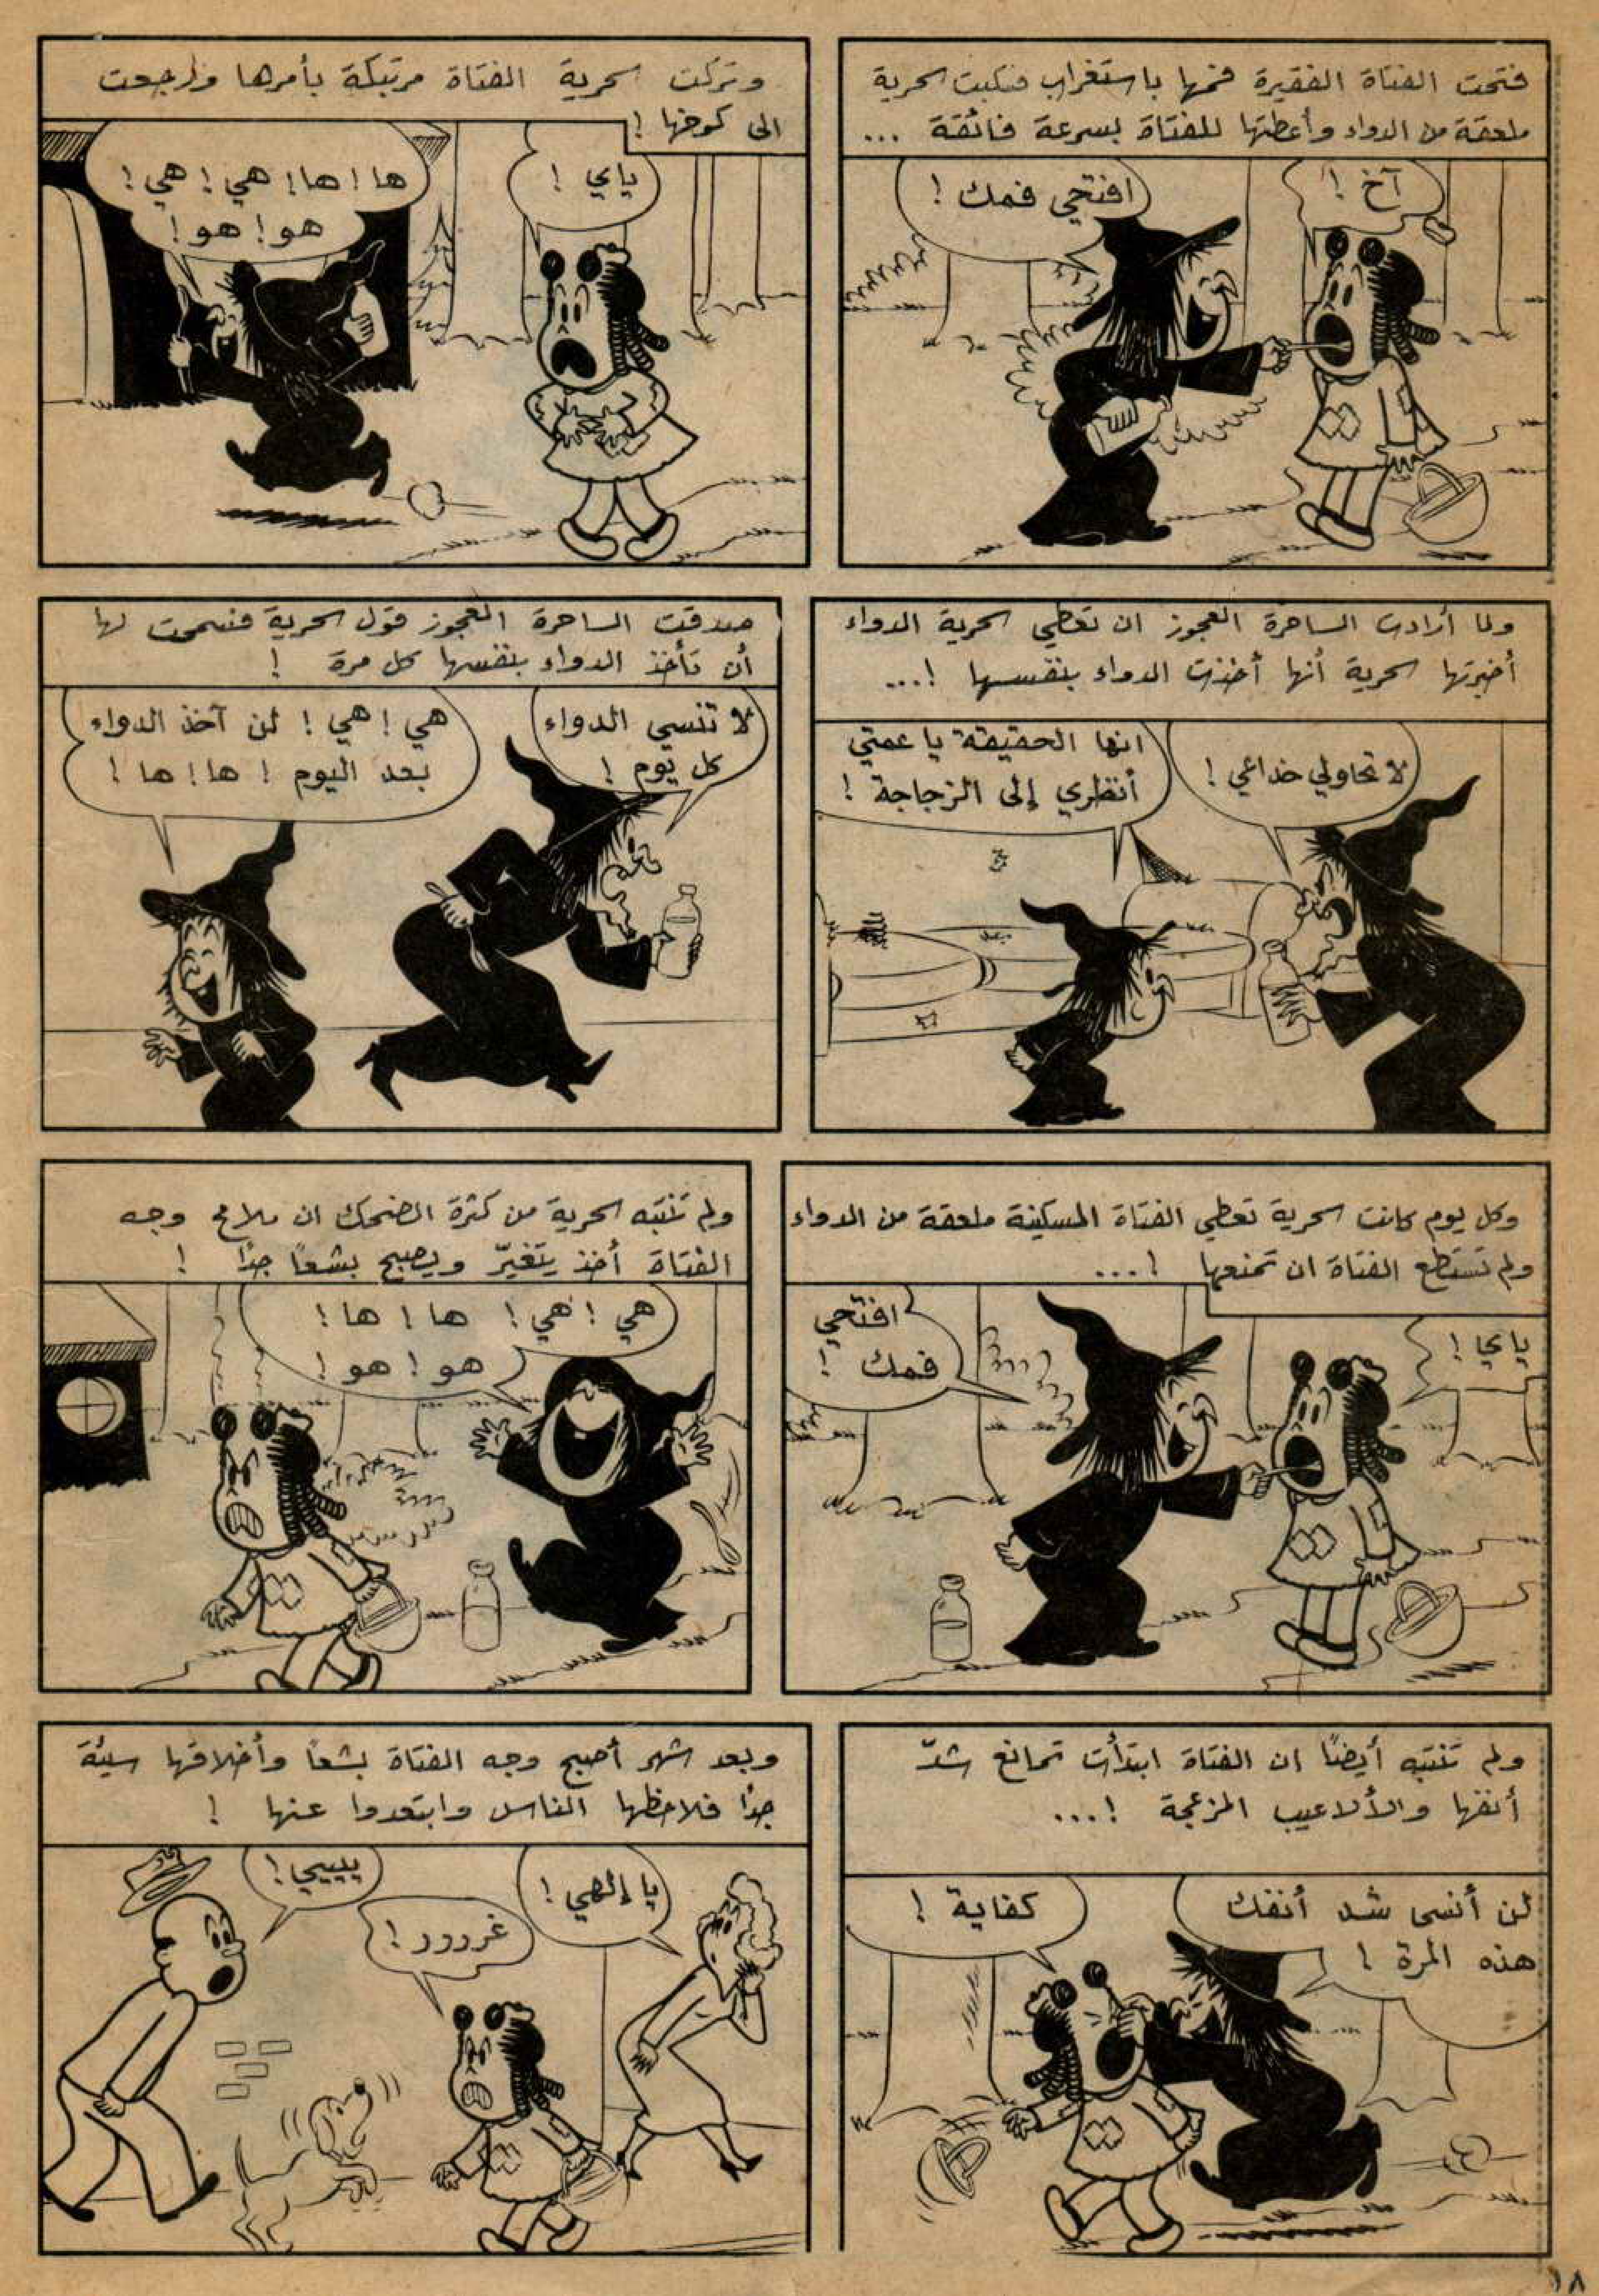 فتحت الفتاة الفقيرة فمها باستغراب فسكبت سحرية
ملعقة من الدواء وأعطتها للفتاة بسرعة فائقة ...
افتحي فمك !
آخ !
وتركت سحرية الفتاة مرتبكة بأمرها ورجعت
الى كوخها !
ياي !
ها ! ها ! هي ! هي !
هو ! هو !
ولما أرادت الساحرة العجوز ان تعطي سحرية الدواء
أخبرتها سحرية أنها أخذت الدواء بنفسها !...
لا تحاولي خداعي !
انها الحقيقة يا عمتي
أنظري إلى الزجاجة !
صدقت الساحرة العجوز قول سحرية فسمحت لها
أن تأخذ الدواء بنفسها كل مرة !
لا تنسي الدواء
كل يوم !
هي ! هي ! لن آخذ الدواء
بعد اليوم ! ها ! ها !
وكل يوم كانت سحرية تعطي الفتاة المسكينة ملعقة من الدواء
ولم تستطع الفتاة ان تمنعها !...
افتحي
فمك !
ياي !
ولم تنتبه سحرية من كثرة الضحك ان ملامح وجه
الفتاة أخذ يتغيّر ويصبح بشعاً جداً !
هي ! هي ! ها ! ها !
هو ! هو !
ولم تنتبه أيضاً ان الفتاة ابتدأت تمانع شدّ
أنفها والألاعيب المزعجة !...
لن أنسى شد أنفك
هذه المرة !
كفاية !
وبعد شهر أصبح وجه الفتاة بشعاً وأخلاقها سيئة
جداً فلاحظها الناس وابتعدوا عنها !
يا إلهي !
غررور !
يييي !
١٨